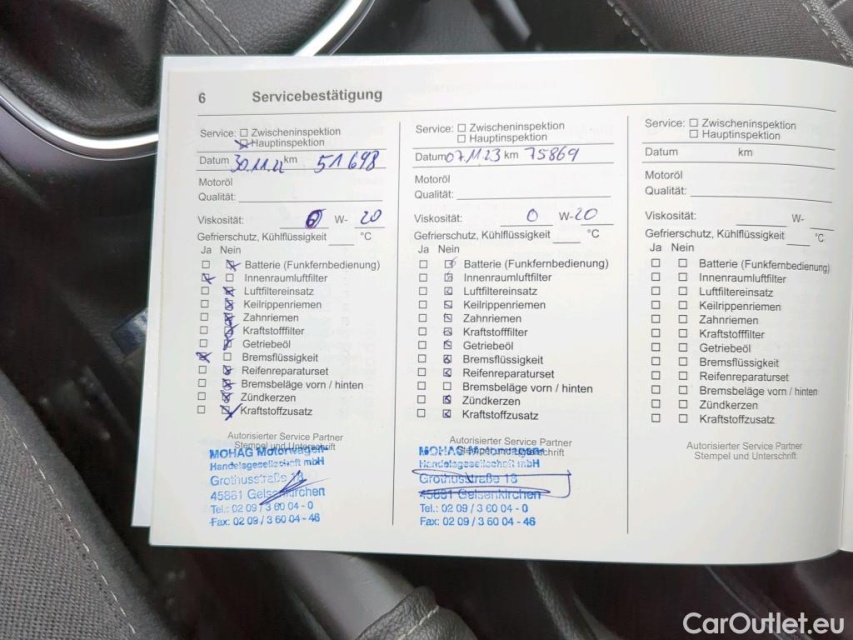 6 Servicebestätigung
Service: Zwischeninspektion
Hauptinspektion
Datum 30.11.22 km 51698
Motoröl
Qualität:
Viskosität: 0 W- 20
Gefrierschutz, Kühlflüssigkeit °C
Ja Nein
Batterie (Funkfernbedienung)
Innenraumluftfilter
Luftfiltereinsatz
Keilrippenriemen
Zahnriemen
Kraftstofffilter
Getriebeöl
Bremsflüssigkeit
Reifenreparaturset
Bremsbeläge vorn / hinten
Zündkerzen
Kraftstoffzusatz
Autorisierter Service Partner
Stempel und Unterschrift
MOHAG Motorwagen
Handelsgesellschaft mbH
Grothusstraße
45881 Gelsenkirchen
Tel.: 02 09 / 3 60 04 - 0
Fax: 02 09 / 3 60 04 - 46
Service: Zwischeninspektion
Hauptinspektion
Datum 07.11.23 km 75869
Motoröl
Qualität:
Viskosität: 0 W- 20
Gefrierschutz, Kühlflüssigkeit °C
Ja Nein
Batterie (Funkfernbedienung)
Innenraumluftfilter
Luftfiltereinsatz
Keilrippenriemen
Zahnriemen
Kraftstofffilter
Getriebeöl
Bremsflüssigkeit
Reifenreparaturset
Bremsbeläge vorn / hinten
Zündkerzen
Kraftstoffzusatz
Autorisierter Service Partner
MOHAG Motorwagen
Handelsgesellschaft mbH
Grothusstraße 18
45881 Gelsenkirchen
Tel.: 02 09 / 3 60 04 - 0
Fax: 02 09 / 3 60 04 - 46
Service: Zwischeninspektion
Hauptinspektion
Datum km
Motoröl
Qualität:
Viskosität: W-
Gefrierschutz, Kühlflüssigkeit °C
Ja Nein
Batterie (Funkfernbedienung)
Innenraumluftfilter
Luftfiltereinsatz
Keilrippenriemen
Zahnriemen
Kraftstofffilter
Getriebeöl
Bremsflüssigkeit
Reifenreparaturset
Bremsbeläge vorn / hinten
Zündkerzen
Kraftstoffzusatz
Autorisierter Service Partner
Stempel und Unterschrift
CarOutlet.eu